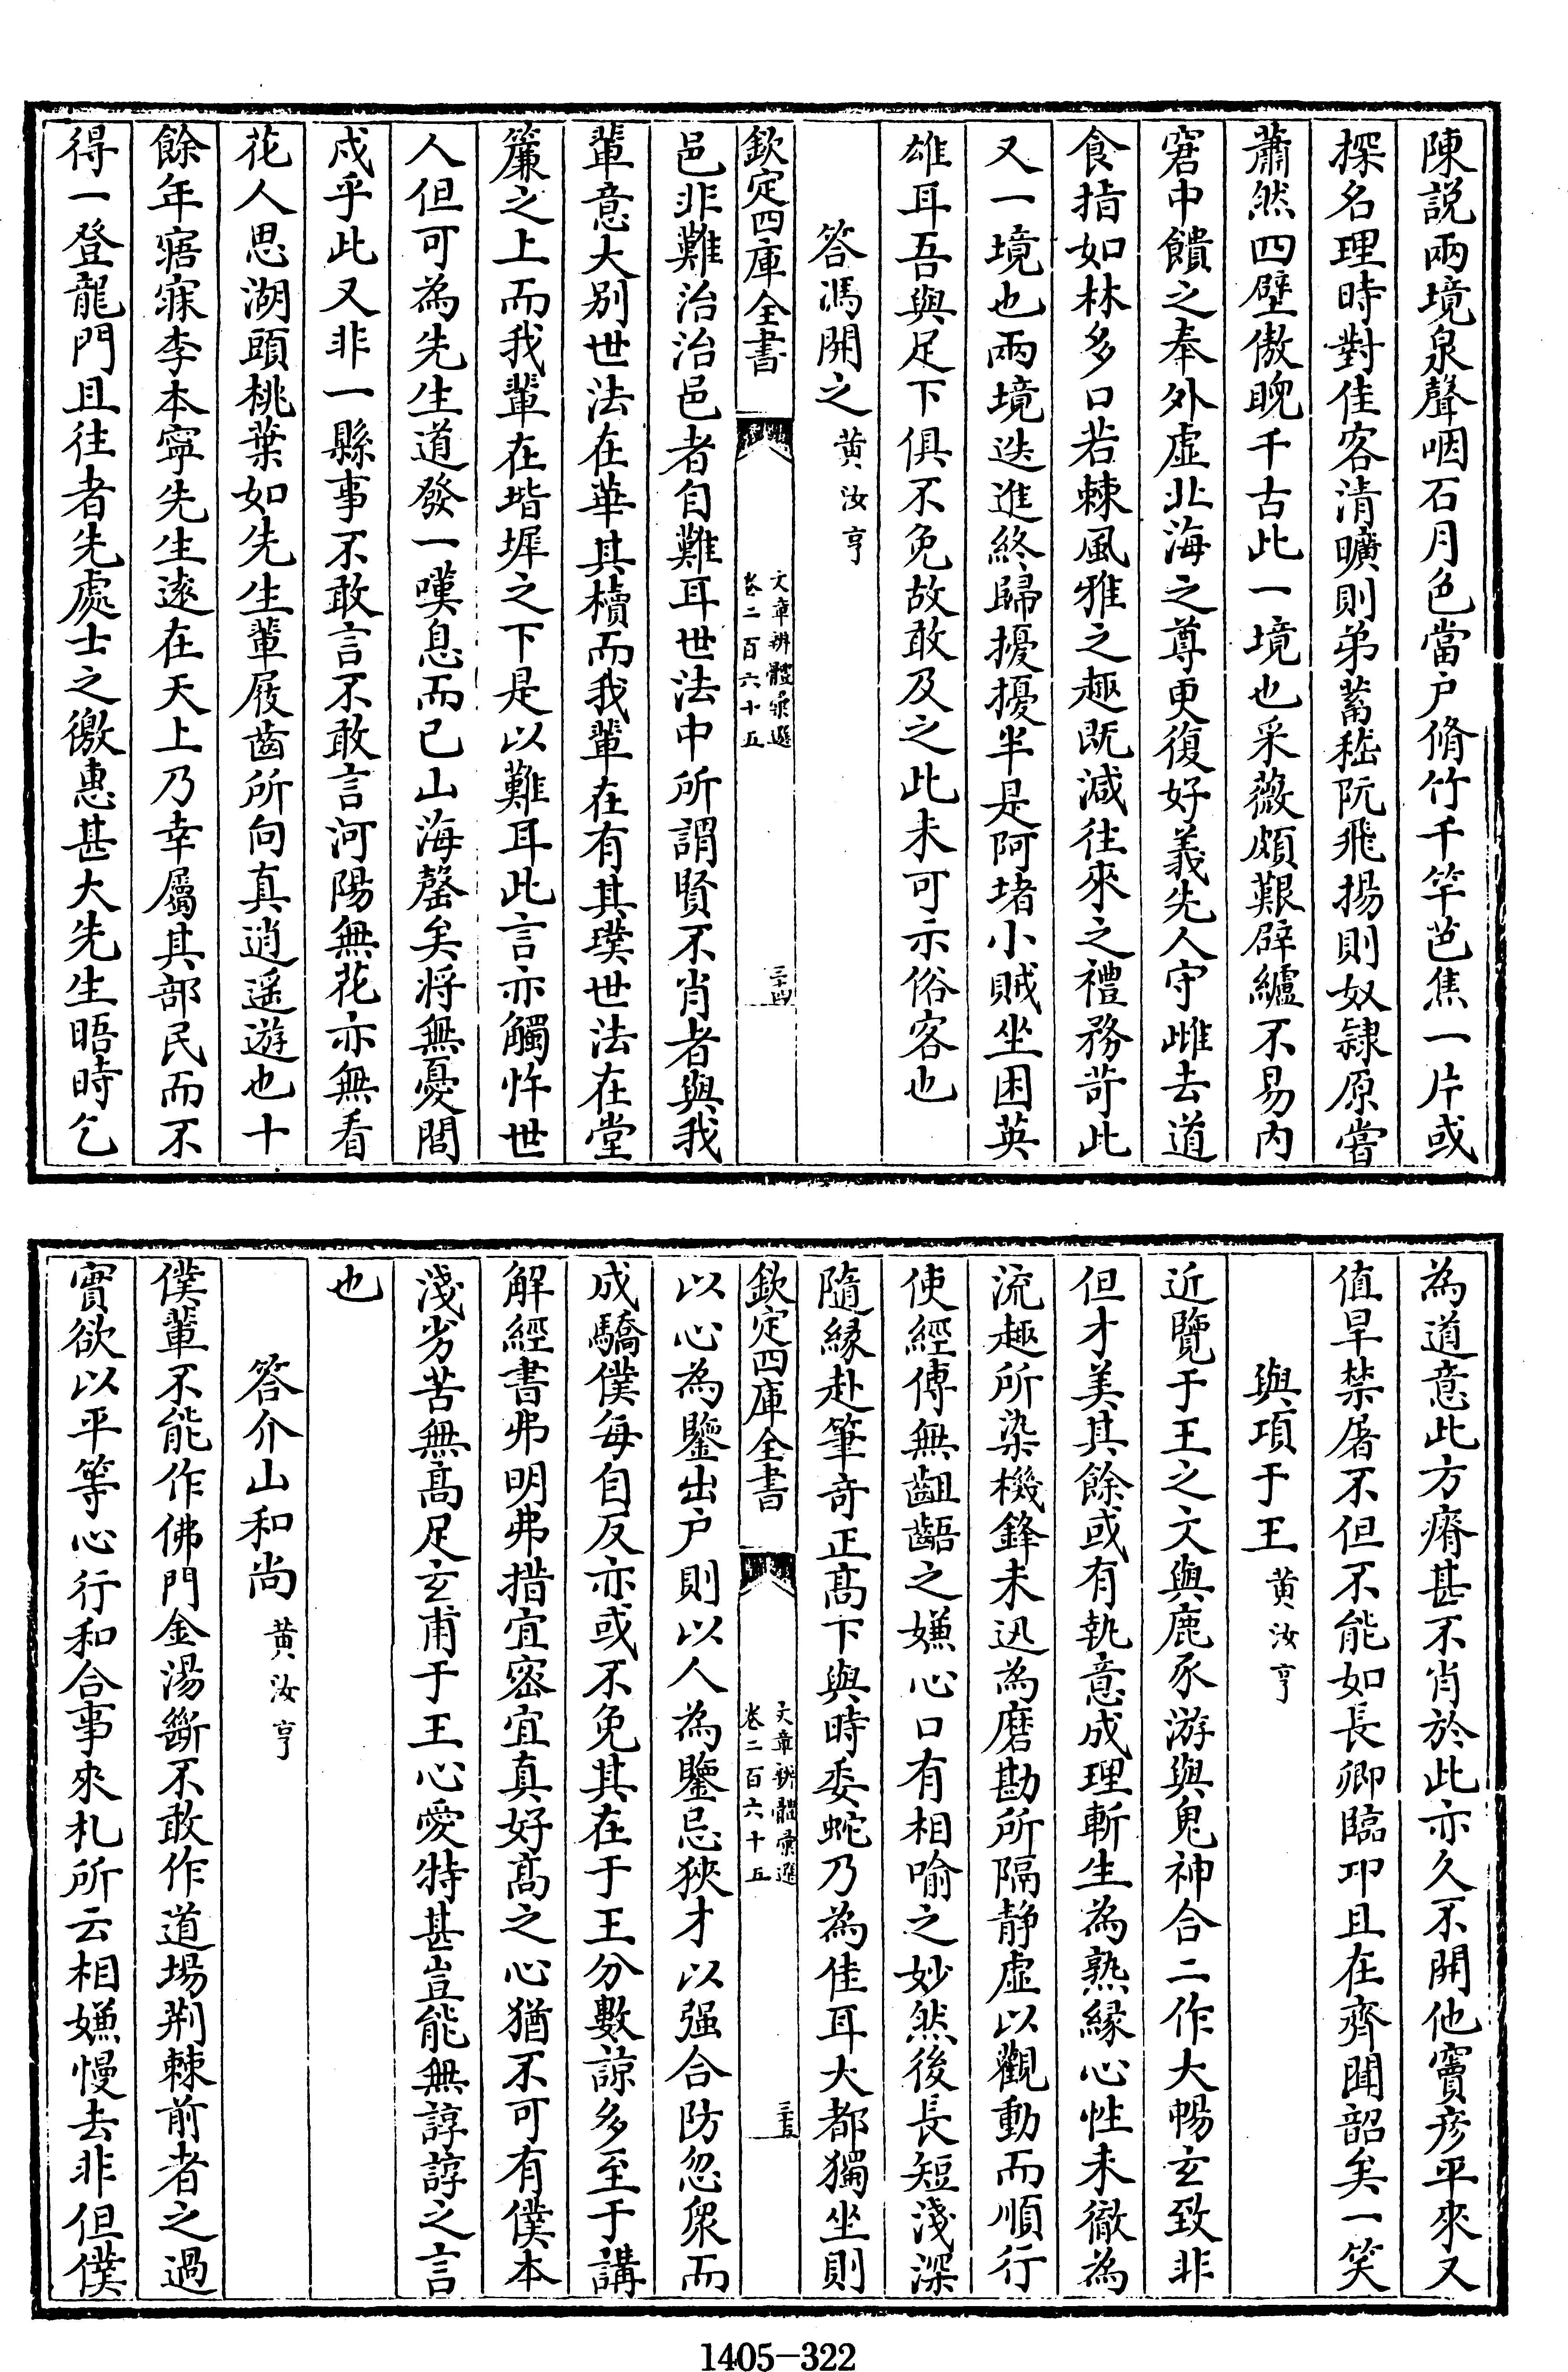 陳説兩境泉聲咽石月色當户脩竹千竿芭焦一片或
探名理時對佳客清曠則弟蓄嵇阮飛揚則奴隸原嘗
蕭然四壁傲睨千古此一境也采薇頗艱辟纑不易内
窘中饋之奉外虚北海之尊更復好義先人守雌去道
食指如林多口若棘風雅之趣既減往來之禮務苛此
又一境也兩境迭進終歸擾擾半是阿堵小賊坐困英
雄耳吾與足下俱不免故敢及之此未可示俗客也
答馮開之 黄汝亨
欽定四庫全書 文章辨體彚選 卷二百六十五 三十四
邑非難治治邑者自難耳世法中所謂賢不肖者與我
輩意大别世法在華其櫝而我輩在有其璞世法在堂
簾之上而我輩在堦墀之下是以難耳此言亦觸忤世
人但可為先生道發一嘆息而已山海罄矣將無憂閭
戍乎此又非一縣事不敢言不敢言河陽無花亦無看
花人思湖頭桃葉如先生輩屐齒所向真逍遥遊也十
餘年寤寐李本寧先生逺在天上乃幸屬其部民而不
得一登龍門且往者先處士之徼惠甚大先生晤時乞
為道意此方瘠甚不肖於此亦久不開他竇彦平來又
值旱禁屠不但不能如長卿臨卭且在齊聞韶矣一笑
與項于王 黄汝亨
近覽于王之文與鹿豕游與鬼神合二作大暢玄致非
但才美其餘或有執意成理斬生為熟緣心性未徹為
流趣所染機鋒未迅為磨勘所隔静虚以觀動而順行
使經傳無齟齬之嫌心口有相喻之妙然後長短淺深
隨緣赴筆竒正髙下與時委蛇乃為佳耳大都獨坐則
欽定四庫全書 文章辨體彚選 卷二百六十五 三十五
以心為鑒出户則以人為鑒忌狹才以强合防忽衆而
成驕僕每自反亦或不免其在于王分數諒多至于講
解經書弗明弗措宜密宜真好髙之心猶不可有僕本
淺劣苦無髙足玄甫于王心愛特甚豈能無諄諄之言
也
答介山和尚 黄汝亨
僕輩不能作佛門金湯斷不敢作道場荆棘前者之過
實欲以平等心行和合事來札所云相嫌慢去非但僕
1405-322